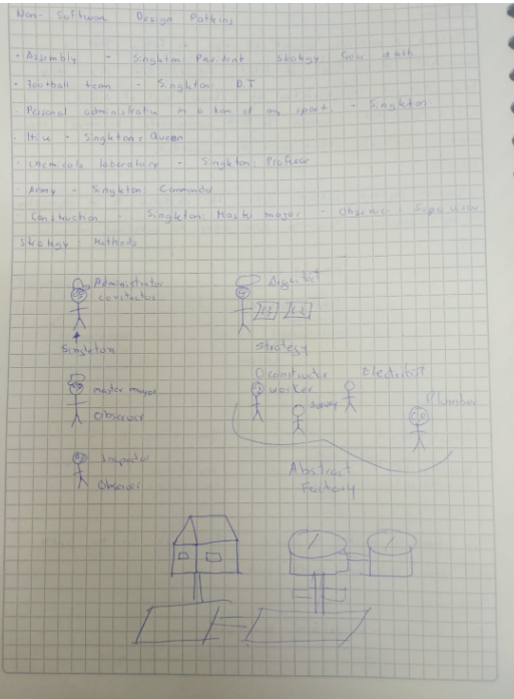 Non-Software Design Patterns
• Assembly - Singleton: President Strategy
• Football team - Singleton: D.T
Personal administration in a of any sport. - Singleton.
Hive - Singleton: Queen
Chemicals laboratory - Singleton: Profesor
Army - Singleton Commander
Construction - Singleton: Master mayor - Observer: Supervisor
Strategy: Methods
Administrator
constructor
Singleton
strategy
master mayor
Observer
Inspector
Observer
constructor
worker
Electricist
Plumber
Abstract
Factory